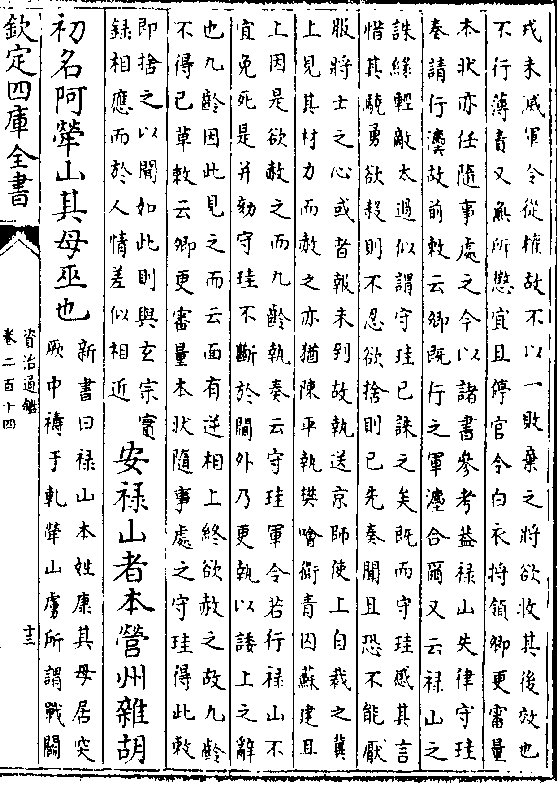 戎未威軍令從權故不以一敗棄之將欲收其後效也
不行薄責又無所懲宜且停官令白衣將領卿更審量
本狀亦任隨事處之今以諸書參考蓋祿山失律守珪
奏請行灋故前敕云卿既行之軍灋合爾又云祿山之
誅緣輕敵太過似謂守珪已誅之矣既而守珪感其言
惜其驍勇欲殺則不忍欲捨則已先奏聞且恐不能厭
服將士之心或者報未到故執送京師使上自裁之冀
上見其材力而赦之亦猶陳平執樊噲衛青囚蘇建且
上因是欲赦之而九齡執奏云守珪軍令若行祿山不
宜免死是并劾守珪不斷於閫外乃更執以諉上之辭
也九齡因此見之而云面有逆相上終欲赦之故九齡
不得已草敕云卿更審量本狀隨事處之守珪得此敕
即捨之以聞如此則與玄宗實
録相應而於人情差似相近
安祿山者本營州雜胡
初名阿犖山其母巫也
新書曰祿山本姓康其母居突
厥中禱于軋犖山虜所謂戰鬭
欽定四庫全書
資治通鑑
卷二百十四
十三